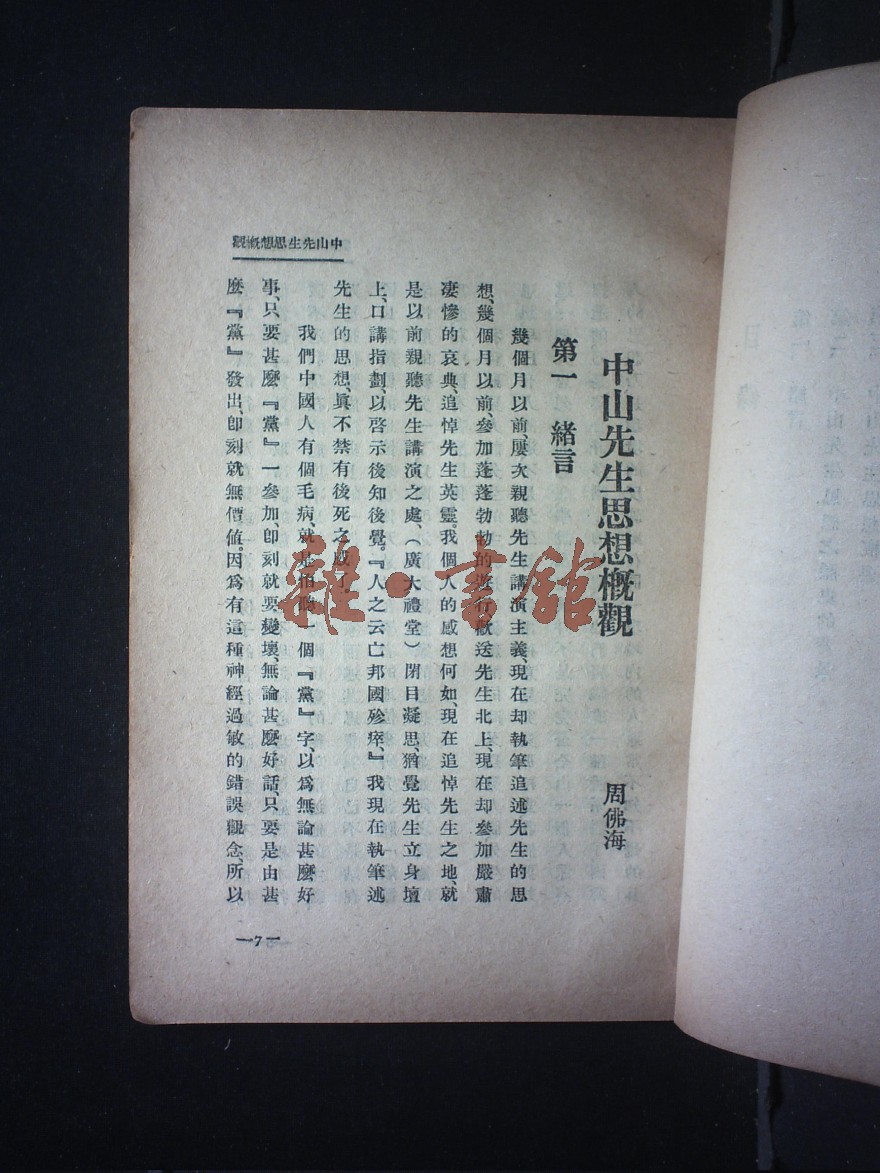 中山先生思想概觀
中山先生思想概觀
周佛海
第一 緒言
幾個月以前、屢次親聽先生講演主義、現在却執筆追述先生的思
想、幾個月以前、參加蓬蓬勃勃的遊行歡送先生北上、現在却參加嚴肅
凄慘的哀典、追悼先生英靈。我個人的感想何如、現在追悼先生之地、就
是以前親聽先生講演之處、(廣大禮堂)閉目凝思、猶覺先生立身壇
上、口講指劃、以啓示後知後覺。『人之云亡邦國殄瘁、』我現在執筆述
先生的思想、眞不禁有後死之感了。
我們中國人有個毛病、就是怕聽一個『黨』字、以爲無論甚麽好
事、只要甚麽『黨』一參加、卽刻就要變壞、無論甚麽好話、只要是由甚
麽『黨』發出、卽刻就無價値。因爲有這種神經過敏的錯誤觀念、所以
—7—
雜·書館